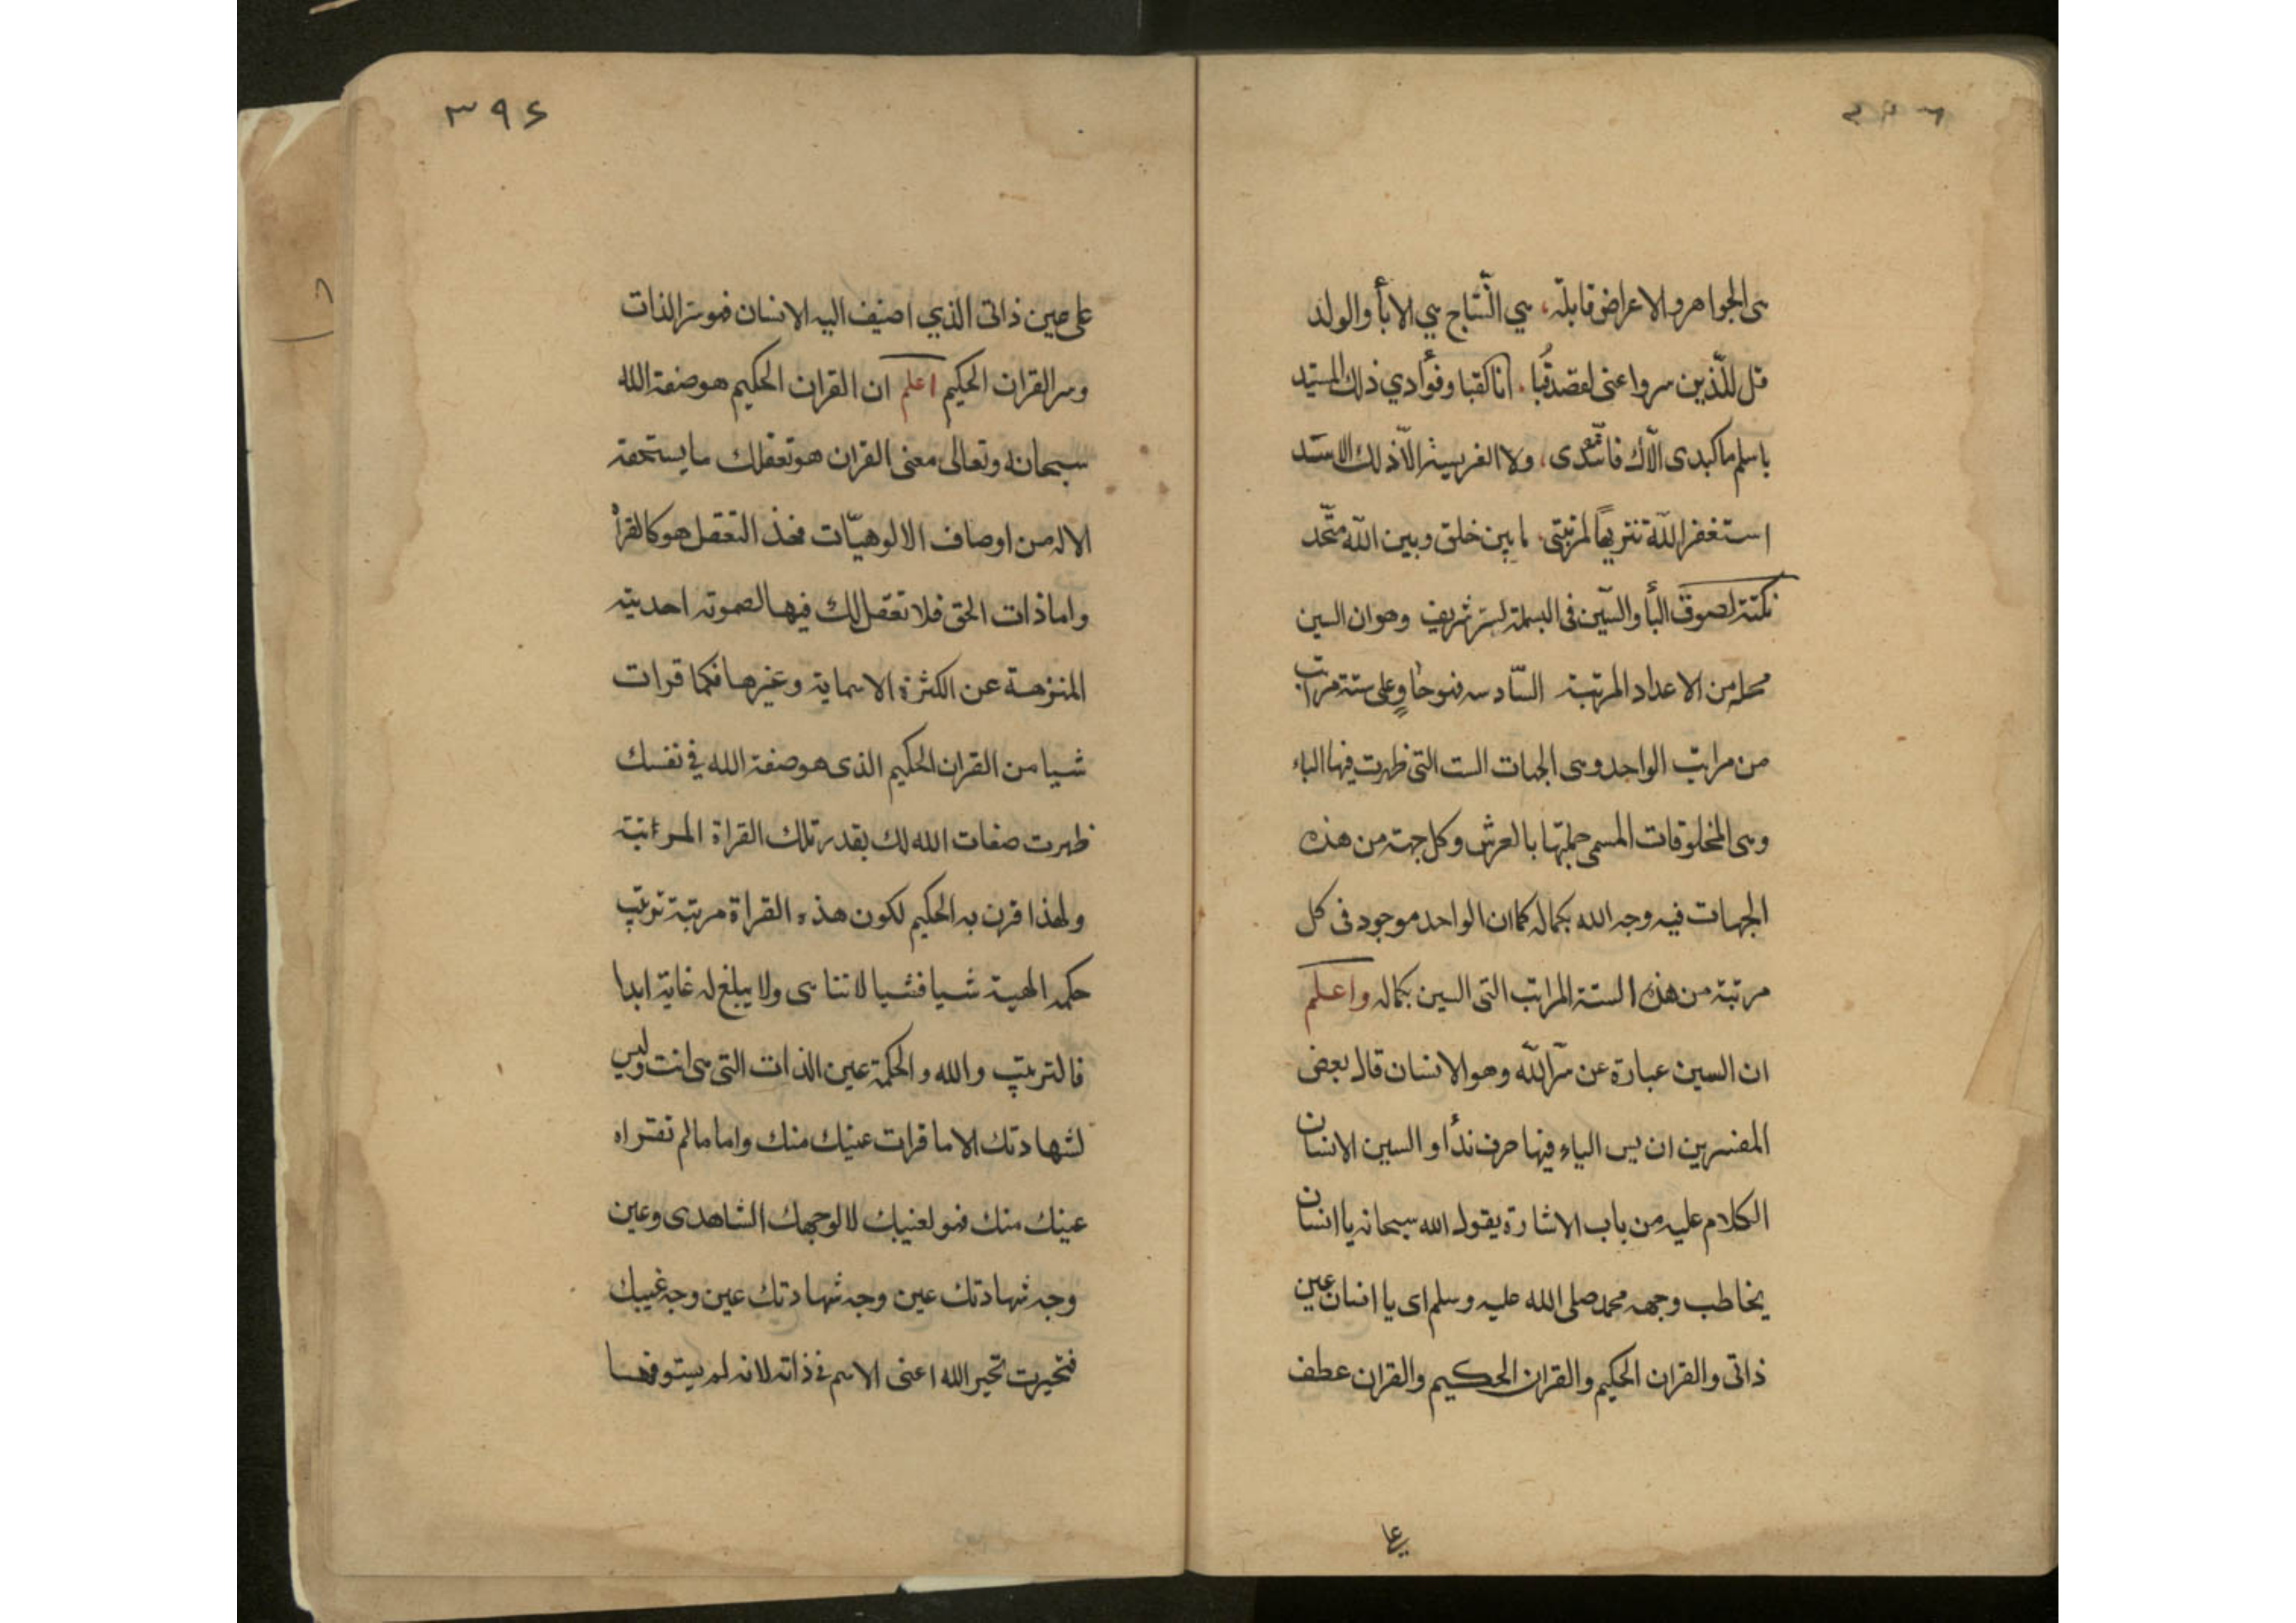 هى الجواهر والاعراض قابلة، هي النّتاج هي الابأ والولد
قل للّذين سروا عنى لعصد قُبا. انا كقبا وفؤادي ذلك السّيد
يا سلم ما كبدى الّاك فاتّئدى، ولا الفريسة الّا ذلك الاسَد
استغفر اللّه تنزيهًا لمرتبتى، ما بين خلق وبين اللّه متّحد
نكتة لصوق البأ والسّين فى البسملة لسر شريف وهو ان السين
محله من الاعداد المرتبة السّادسه فهو حاوٍ على ستة مراتب
من مراتب الواحد وهى الجهات الست التى ظهرت فيها الباء
وهى المخلوقات المسمى جملتها بالعرش وكل جهة من هذه
الجهات فيه وجه الله بكماله كما ان الواحد موجود فى كل
مرتبة من هذه الستة المراتب التى السين بكماله واعلم
ان السين عبارة عن سّر اللّه وهو الانسان قال بعض
المفسرين ان يس الياء فيها حرف ندأ والسين الانسان
الكلام عليه من باب الاشارة يقول الله سبحانه يا انسان
يخاطب وجهه محمد صلى الله عليه وسلم اى يا انسان عين
ذاتى والقران الحكيم والقران الحكيم والقران عطف
٣٩٤
على عين ذاتى الذي اضيف اليه الانسان فهو سّر الذات
وسر القران الحكيم اعلم ان القران الحكيم هو صفة الله
سبحانه وتعالى معنى القران هو تعقلك ما يستحقه
الاله من اوصاف الالوهيّات فخذ التعقل هو كالقرأ
واما ذات الحق فلا تعقل لك فيها لصموته احديته
المنزهة عن الكثرة الاسماية وغيرها فكما قرات
شيا من القران الحكيم الذى هو صفة الله في نفسك
ظهرت صفات الله لك بقدر تلك القراة المرتبة
ولهذا قرن به الحكيم لكون هذه القراة مرتبة ترتب
حكمه الهية شيا فشيا لا تتناهى ولا يبلغ له غاية ابدا
فالترتيب والله والحكمة عين الذات التى هى انت وليس
لشهادتك الا ما قرات عينك منك واما ما لم تقراه
عينك منك فهو لغيبك لا لوجهك الشاهدى وعين
وجه شهادتك عين وجه شهادتك عين وجه غيبك
فتحيرت تحير الله اعنى الاسم في ذاته لانه لم يستوفها